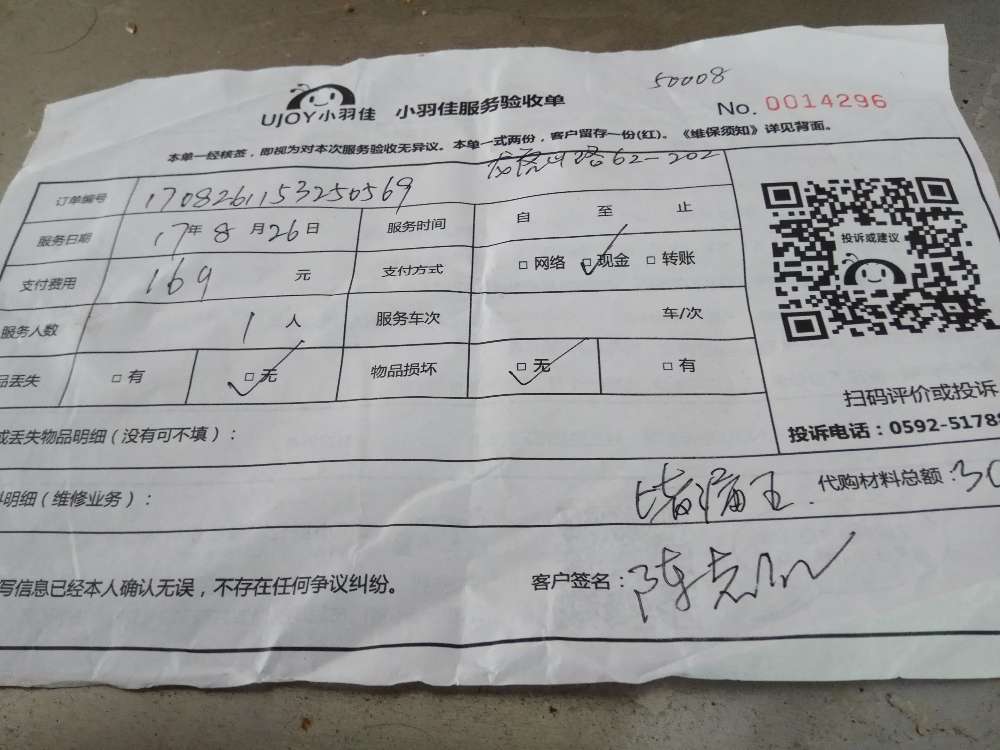 50008
UJOY小羽佳 小羽佳服务验收单 No. 0014296
本单一经核签，即视为对本次服务验收无异议。本单一式两份，客户留存一份(红)。《维保须知》详见背面。
62-202
订单编号 1708261153250569
服务日期 17年8月26日 服务时间 自 至 止
支付费用 169 元 支付方式 □ 网络 □ 现金 □ 转账
服务人数 1 人 服务车次 车/次
品丢失 □ 有 □ 无 物品损坏 □ 无 □ 有
投诉或建议
扫码评价或投诉
投诉电话：0592-5178
或丢失物品明细（没有可不填）：
料明细（维修业务）： 堵漏王. 代购材料总额：30
写信息已经本人确认无误，不存在任何争议纠纷。 客户签名：陈志